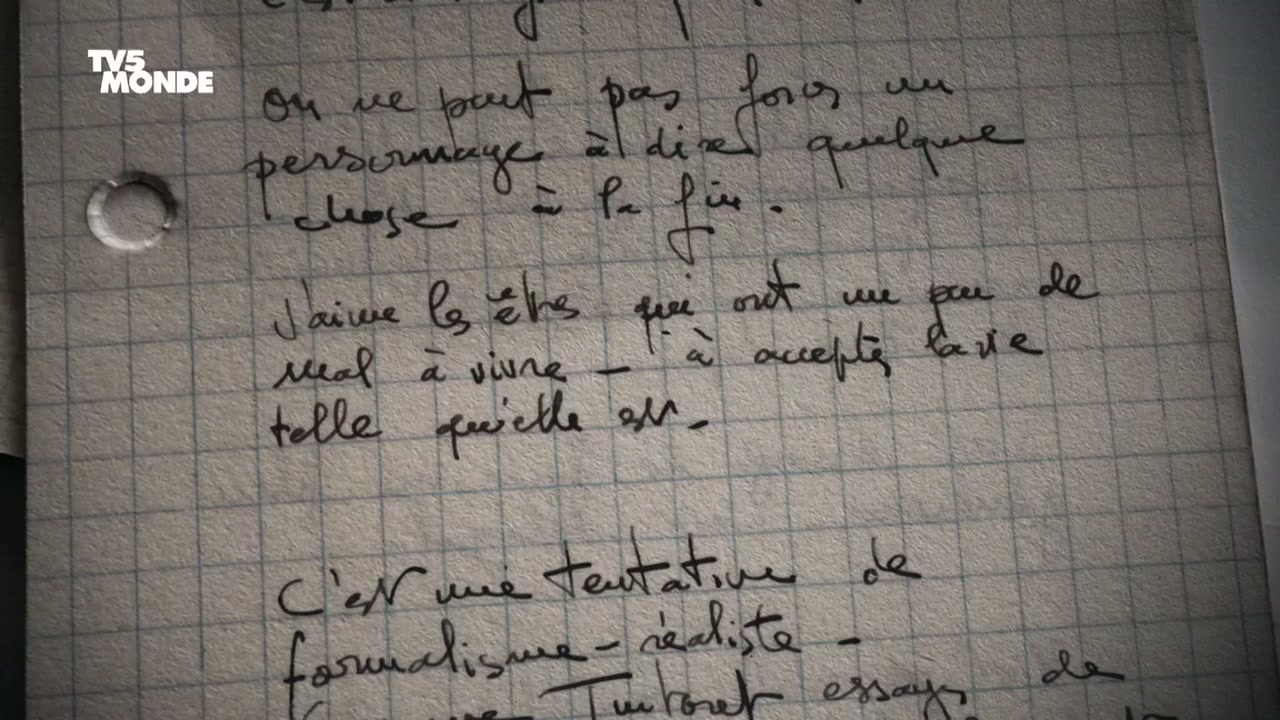 TV5
MONDE
on ne peut pas forcer un
personnage à dire quelque
chose à la fin.
J'aime les êtres qui ont un peu de
mal à vivre – à accepter la vie
telle qu'elle est –
C'est une tentative de
formalisme-réaliste –
Tintoret essayer de